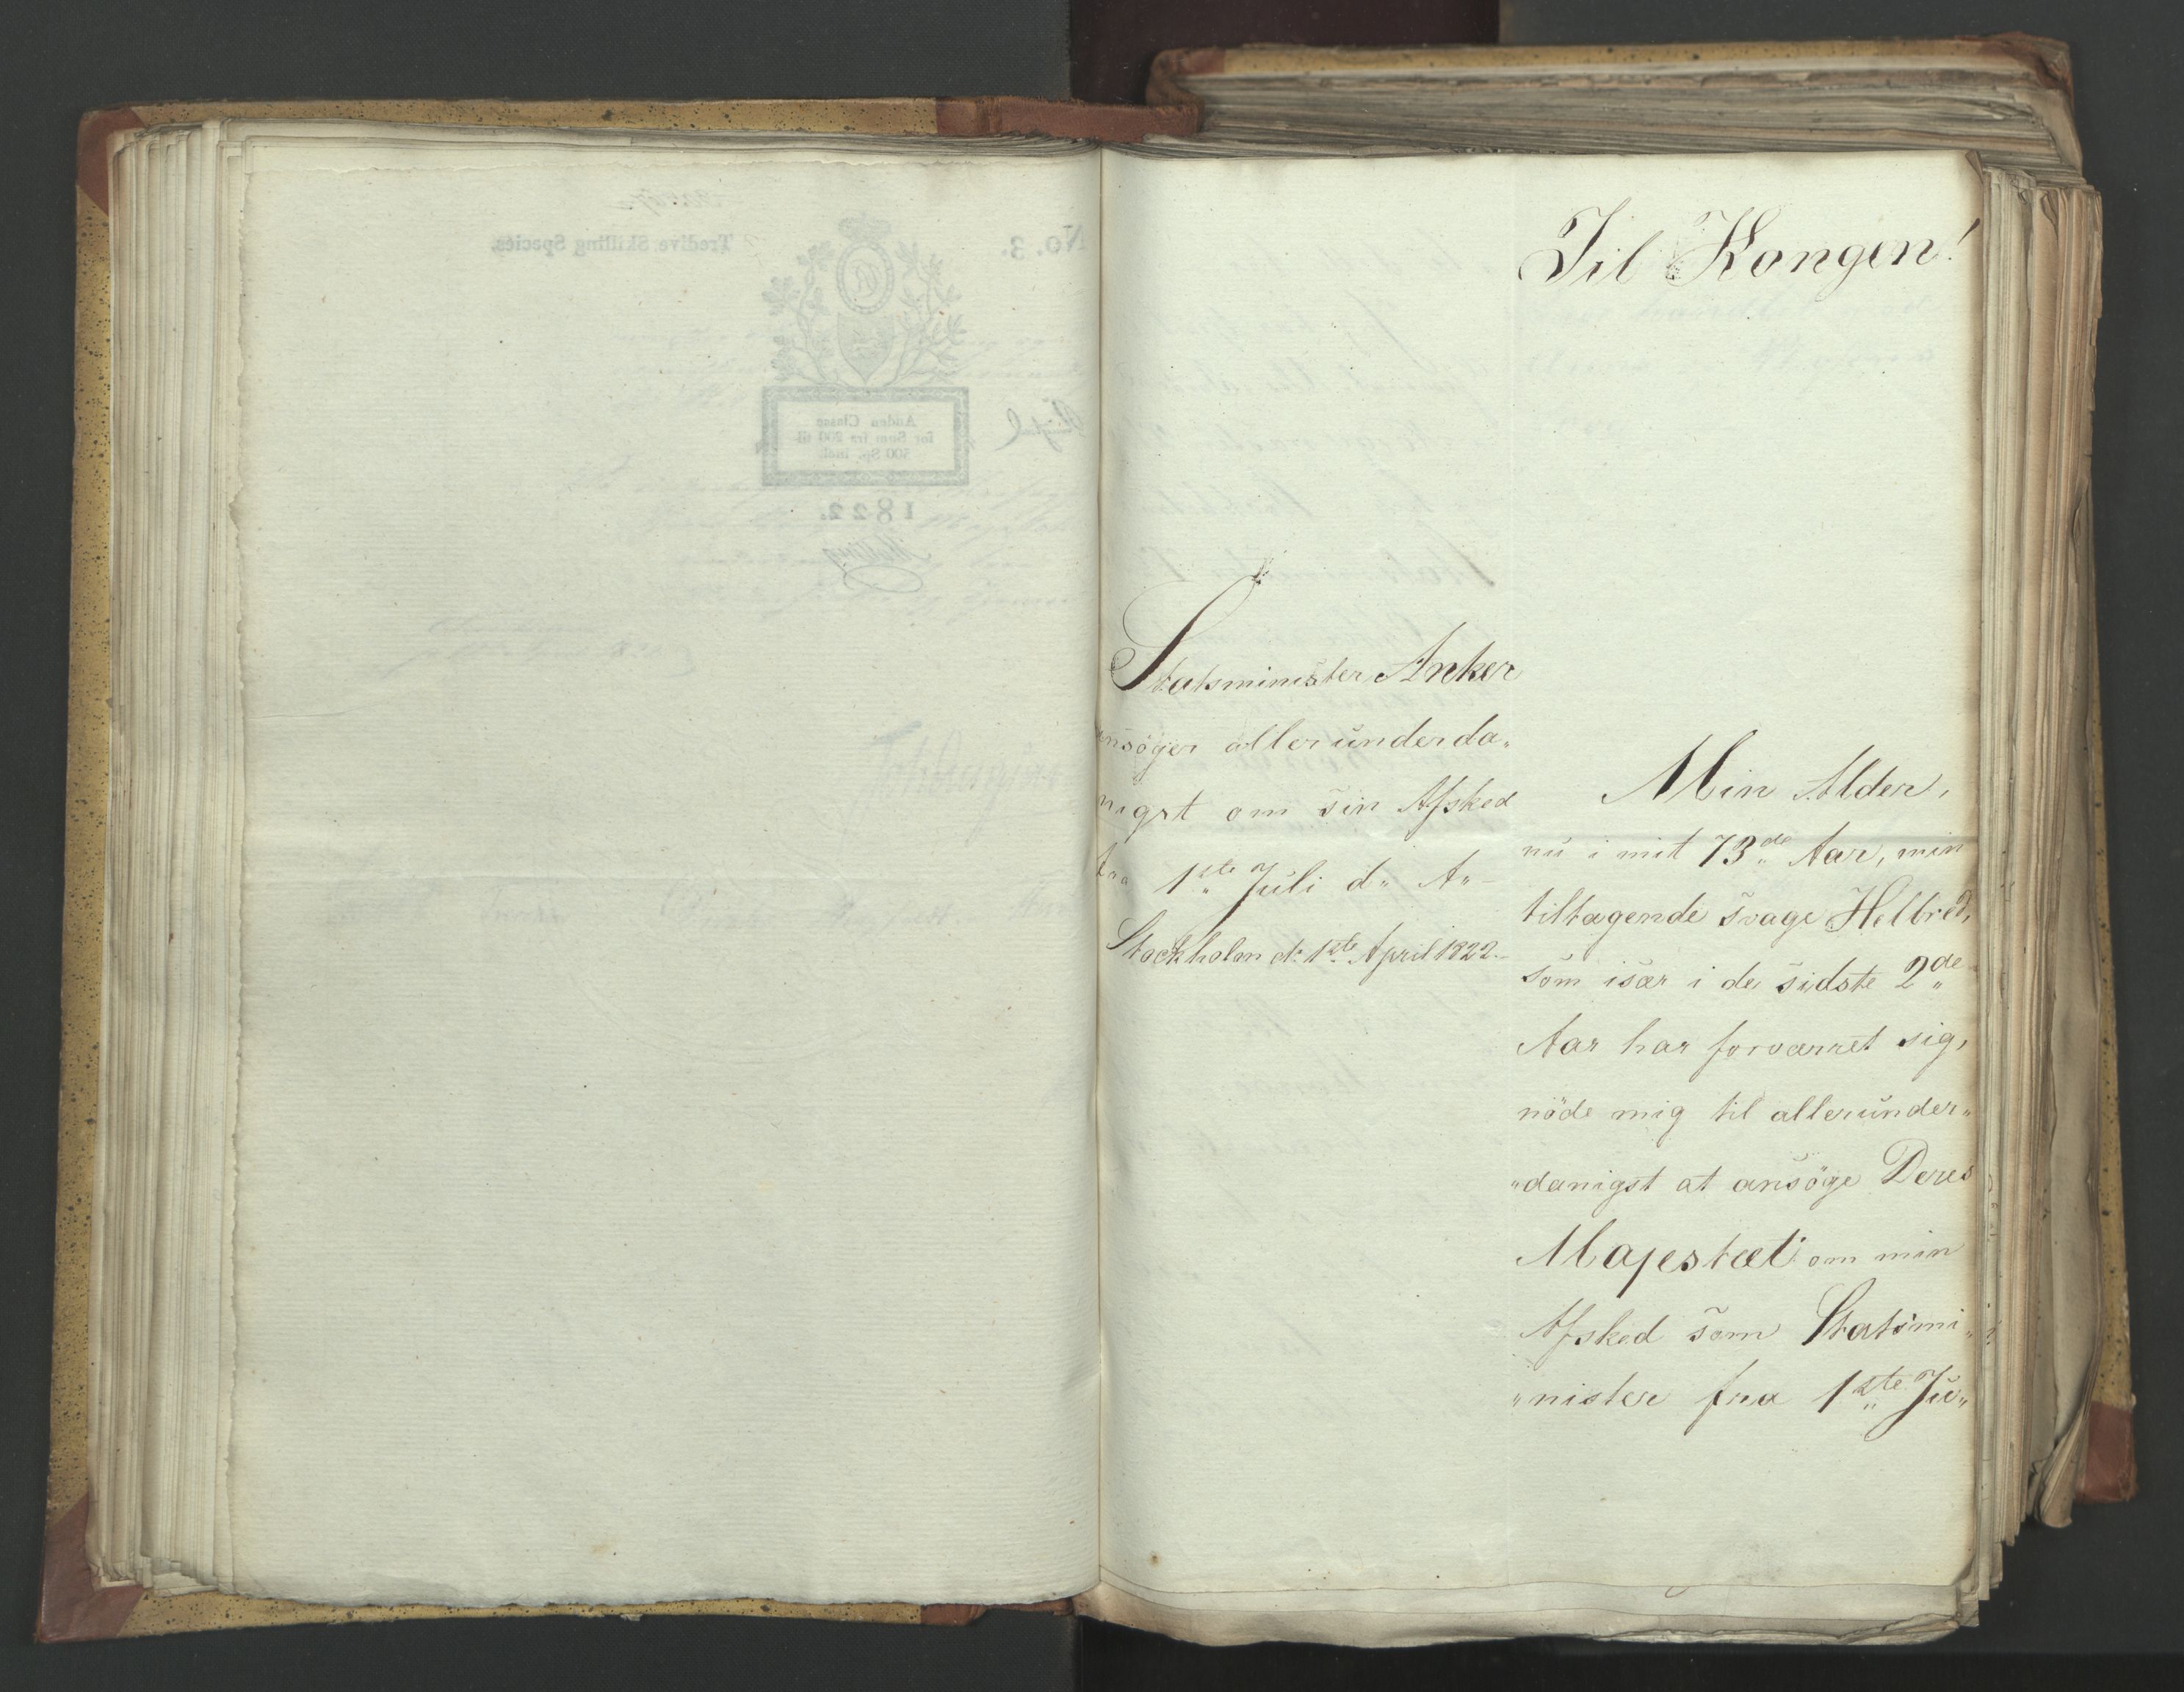 Til Kongen!
Statsminister Anker
ansöger allerunderda„
nigst om sin Afsked
fra 1ste Juli d„ A„
Stockholm d: 1ste April 1822.
Min Alder,
nu i mit 73de Aar, min
tiltagende svage Helbred,
som især i de sidste 2de
Aar har forværret sig,
nöde mig til allerunder„
„danigst at ansöge Deres
Majestæt om min
Afsked som Statsmi„
„nister fra 1ste Ju„
No. 3.
Tredive Skilling Species.
Anden Classe
for Sum fra 200 til
500 Sp. incl.
1822.